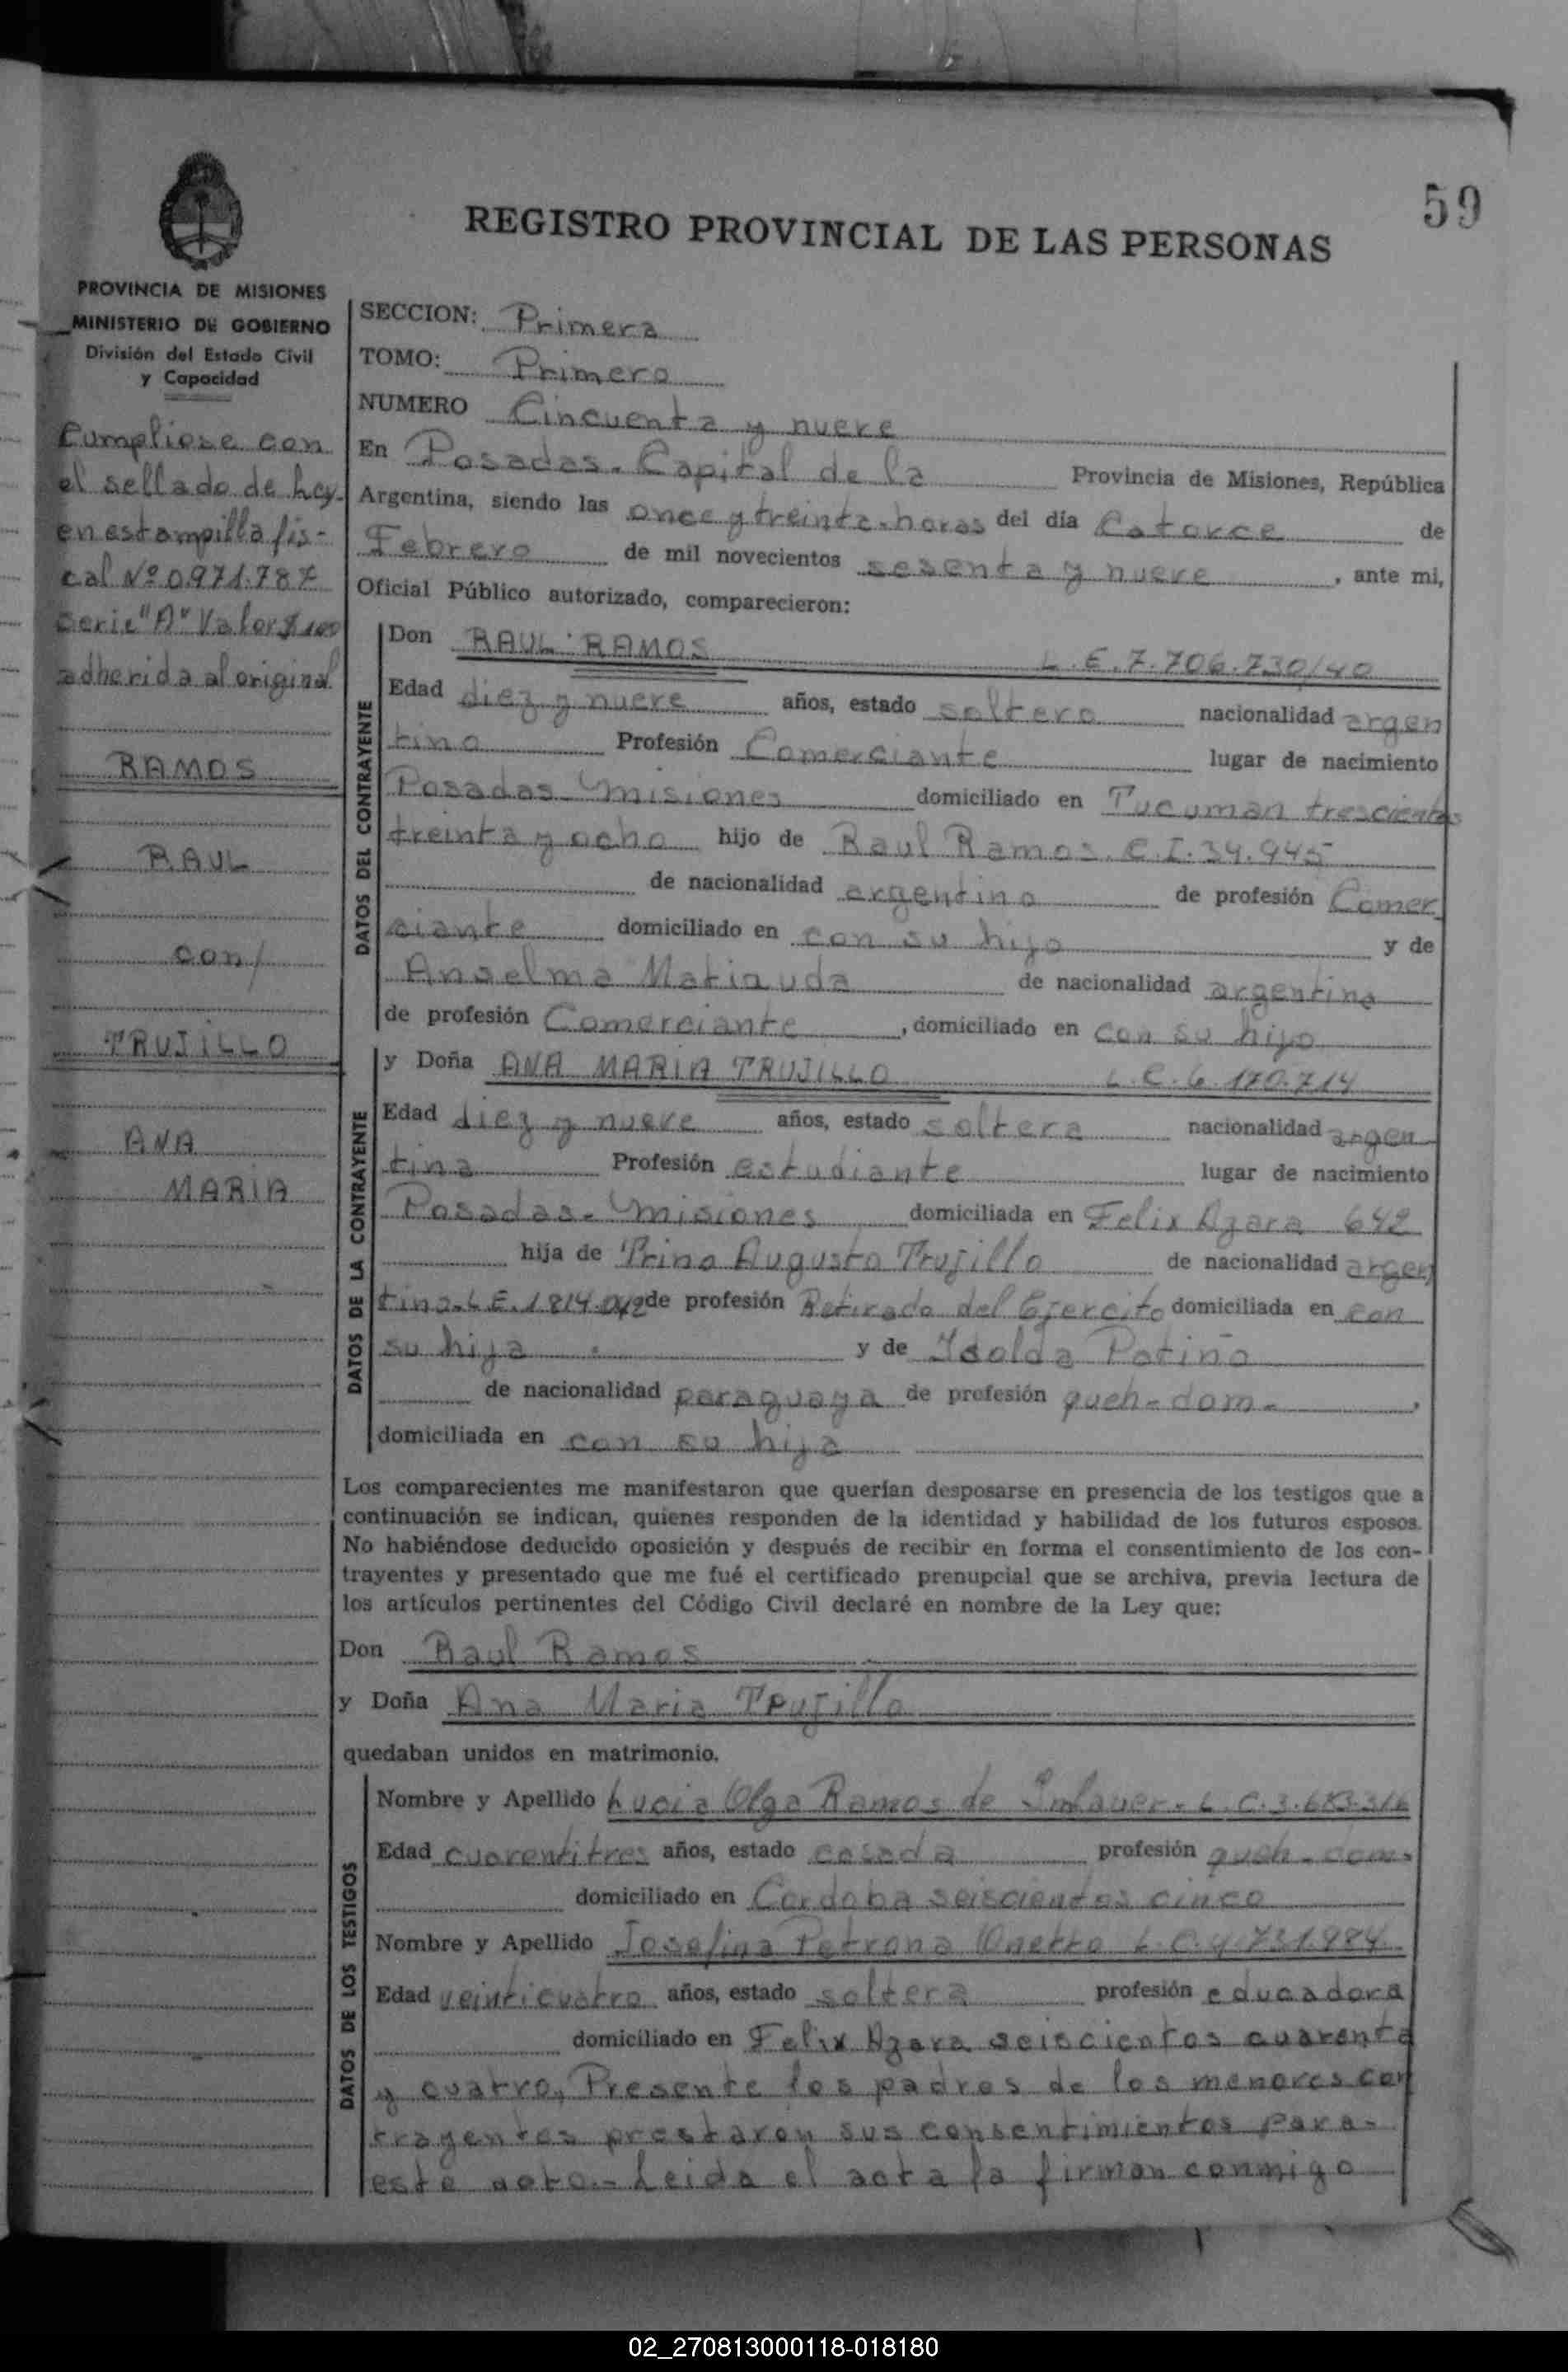 59
REGISTRO PROVINCIAL DE LAS PERSONAS
PROVINCIA DE MISIONES
MINISTERIO DE GOBIERNO
División del Estado Civil
y Capacidad
Cumpliose con
el sellado de Ley-
en estampilla fis-
cal Nº 0971.787
serie "A" Valor $100
adherida al original
RAMOS
RAUL
con/
TRUJILLO
ANA
MARIA
SECCION: Primera
TOMO: Primero
NUMERO Cincuenta y nueve
En Posadas. Capital de la Provincia de Misiones, República
Argentina, siendo las once y treinta horas del día Catorce de
Febrero de mil novecientos sesenta y nueve, ante mi,
Oficial Público autorizado, comparecieron:
DATOS DEL CONTRAYENTE
Don RAUL RAMOS L.E.7.706.730/40
Edad diez y nueve años, estado soltero nacionalidad argen
tino Profesión Comerciante lugar de nacimiento
Posadas-Misiones domiciliado en Tucuman trescientos
treinta y ocho hijo de Raul Ramos. C.I.34.945
de nacionalidad argentino de profesión Comer
ciante domiciliado en con su hijo y de
Anselma Matiauda de nacionalidad argentina
de profesión Comerciante, domiciliado en con su hijo
DATOS DE LA CONTRAYENTE
y Doña ANA MARIA TRUJILLO L.C.6.170.714
Edad diez y nueve años, estado soltera nacionalidad argen
tina Profesión estudiante lugar de nacimiento
Posadas-Misiones domiciliada en Felix Azara 642
hija de Primo Augusto Trujillo de nacionalidad argen
tino-L.E.1.814.042 de profesión Retirado del Ejercito domiciliada en con
su hija y de Isolda Patiño
de nacionalidad paraguaya de profesión queh-dom-,
domiciliada en con su hija
Los comparecientes me manifestaron que querían desposarse en presencia de los testigos que a
continuación se indican, quienes responden de la identidad y habilidad de los futuros esposos.
No habiéndose deducido oposición y después de recibir en forma el consentimiento de los con-
trayentes y presentado que me fué el certificado prenupcial que se archiva, previa lectura de
los artículos pertinentes del Código Civil declaré en nombre de la Ley que:
Don Raul Ramos
y Doña Ana Maria Trujillo
quedaban unidos en matrimonio.
DATOS DE LOS TESTIGOS
Nombre y Apellido Lucia Olga Ramos de L.C.3.683.316
Edad cuarentitres años, estado casada profesión queh-dom.
domiciliado en Cordoba seiscientos cinco
Nombre y Apellido Josefina Petrona Onetto L.C.4.731.984
Edad veinticuatro años, estado soltera profesión educadora
domiciliado en Felix Azara seiscientos cuarenta
y cuatro, Presente los padres de los menores con
trayentes prestaron sus consentimientos para-
este acto.- Leida el acta la firman conmigo
02_270813000118-018180